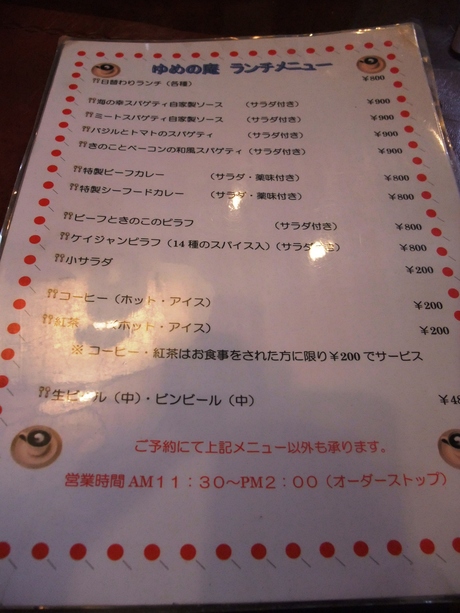 ゆめの庵 ランチメニュー
日替わりランチ（各種） ￥800
海の幸スパゲティ自家製ソース （サラダ付き） ￥900
ミートスパゲティ自家製ソース （サラダ付き） ￥900
バジルとトマトのスパゲティ （サラダ付き） ￥900
きのことベーコンの和風スパゲティ（サラダ付き） ￥900
特製ビーフカレー （サラダ・薬味付き） ￥800
特製シーフードカレー （サラダ・薬味付き） ￥800
ビーフときのこのピラフ （サラダ付き） ￥800
ケイジャンピラフ（14種のスパイス入）（サラダ付き） ￥800
小サラダ ￥200
コーヒー（ホット・アイス） ￥200
紅茶 （ホット・アイス） ￥200
※ コーヒー・紅茶はお食事をされた方に限り￥200でサービス
生ビール（中）・ビンビール（中）
ご予約にて上記メニュー以外も承ります。
営業時間 AM11：30～PM2：00（オーダーストップ）